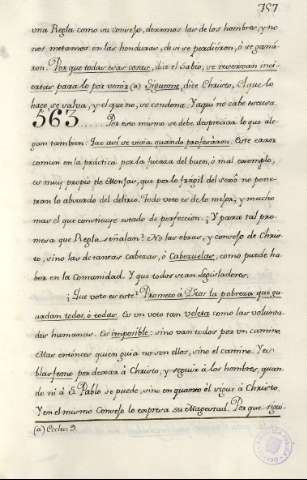 757
una Regla como un consejo, dexemos las de los hombres, y no
nos metamos en las honduras, de si se perdieron, ó se ganá-
ron. Porque todas esas cosas, dice el Sabio, se reservan inci-
ertas para lo por venir (a) Sigueme, dice Christo, el que lo
hace se salva, y el que no, se condena. Y aquí no cabe excusa.
563. Por esto mismo se debe despreciar lo que ale-
gan tambien: Que así se vivía quando profesáron. Este error
comun en la práctica por la fuerza del buen, ó mal exemplo,
es muy propio de Monjas, que por lo frágil del sexô no pene-
tran lo absurdo del delirio. Todo voto es de lo mejor, y mucho
mas el que constituye estado de perfeccion. ¿Y para tal pro-
mesa que Regla señalan? No las obras, y consejo de Chris-
to, sino las de tantas cabezas, ó Cabezuelas, como puede ha-
ber en la Comunidad. Y que todos sean Legisladores.
¿Que voto es este? Prometo á Dios la pobreza que gu-
ardan todos, ó todas. Es un voto tan veleta como las volunta-
des humanas. Es imposible: sino van todos por un camino.
Mas entónces quien guia no son ellos, sino el camino. Y es
blasfemo por dexar á Christo, y seguir á los hombres, quan-
do ni á S. Pablo se puede, sino en quanto él sigue á Christo.
Y en el mismo Consejo lo expresa su Magestad. Porque sigui-
(a) Eccles. 9.